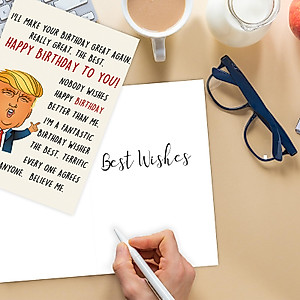 I'LL MAKE YOUR BIRTHDAY GREAT AGAIN.
REALLY GREAT. THE BEST.
HAPPY BIRTHDAY TO YOU!
NOBODY WISHES
HAPPY BIRTHDAY
BETTER THAN ME
I'M A FANTASTIC
BIRTHDAY WISHER
THE BEST. TERRIFIC
EVERY ONE AGREES
ANYONE. BELIEVE ME.
Best Wishes